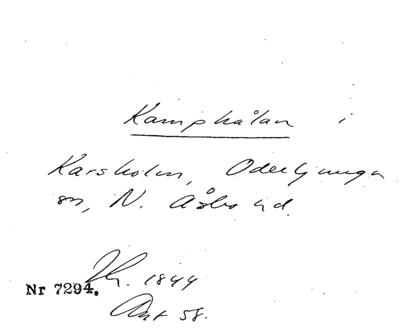 Kamphålan i
Karsholm, Oderljunga
sn, N. Åsbo hd.
Nr 7294.
1844
Ant 58.